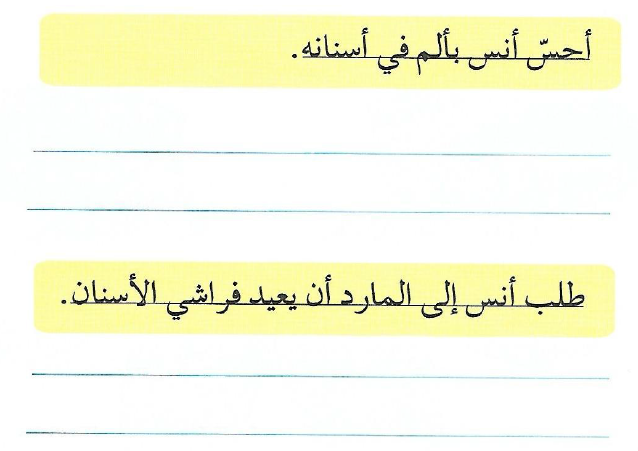 أحسّ أنس بألم في أسنانه.
طلب أنس إلى المارد أن يعيد فراشي الأسنان.